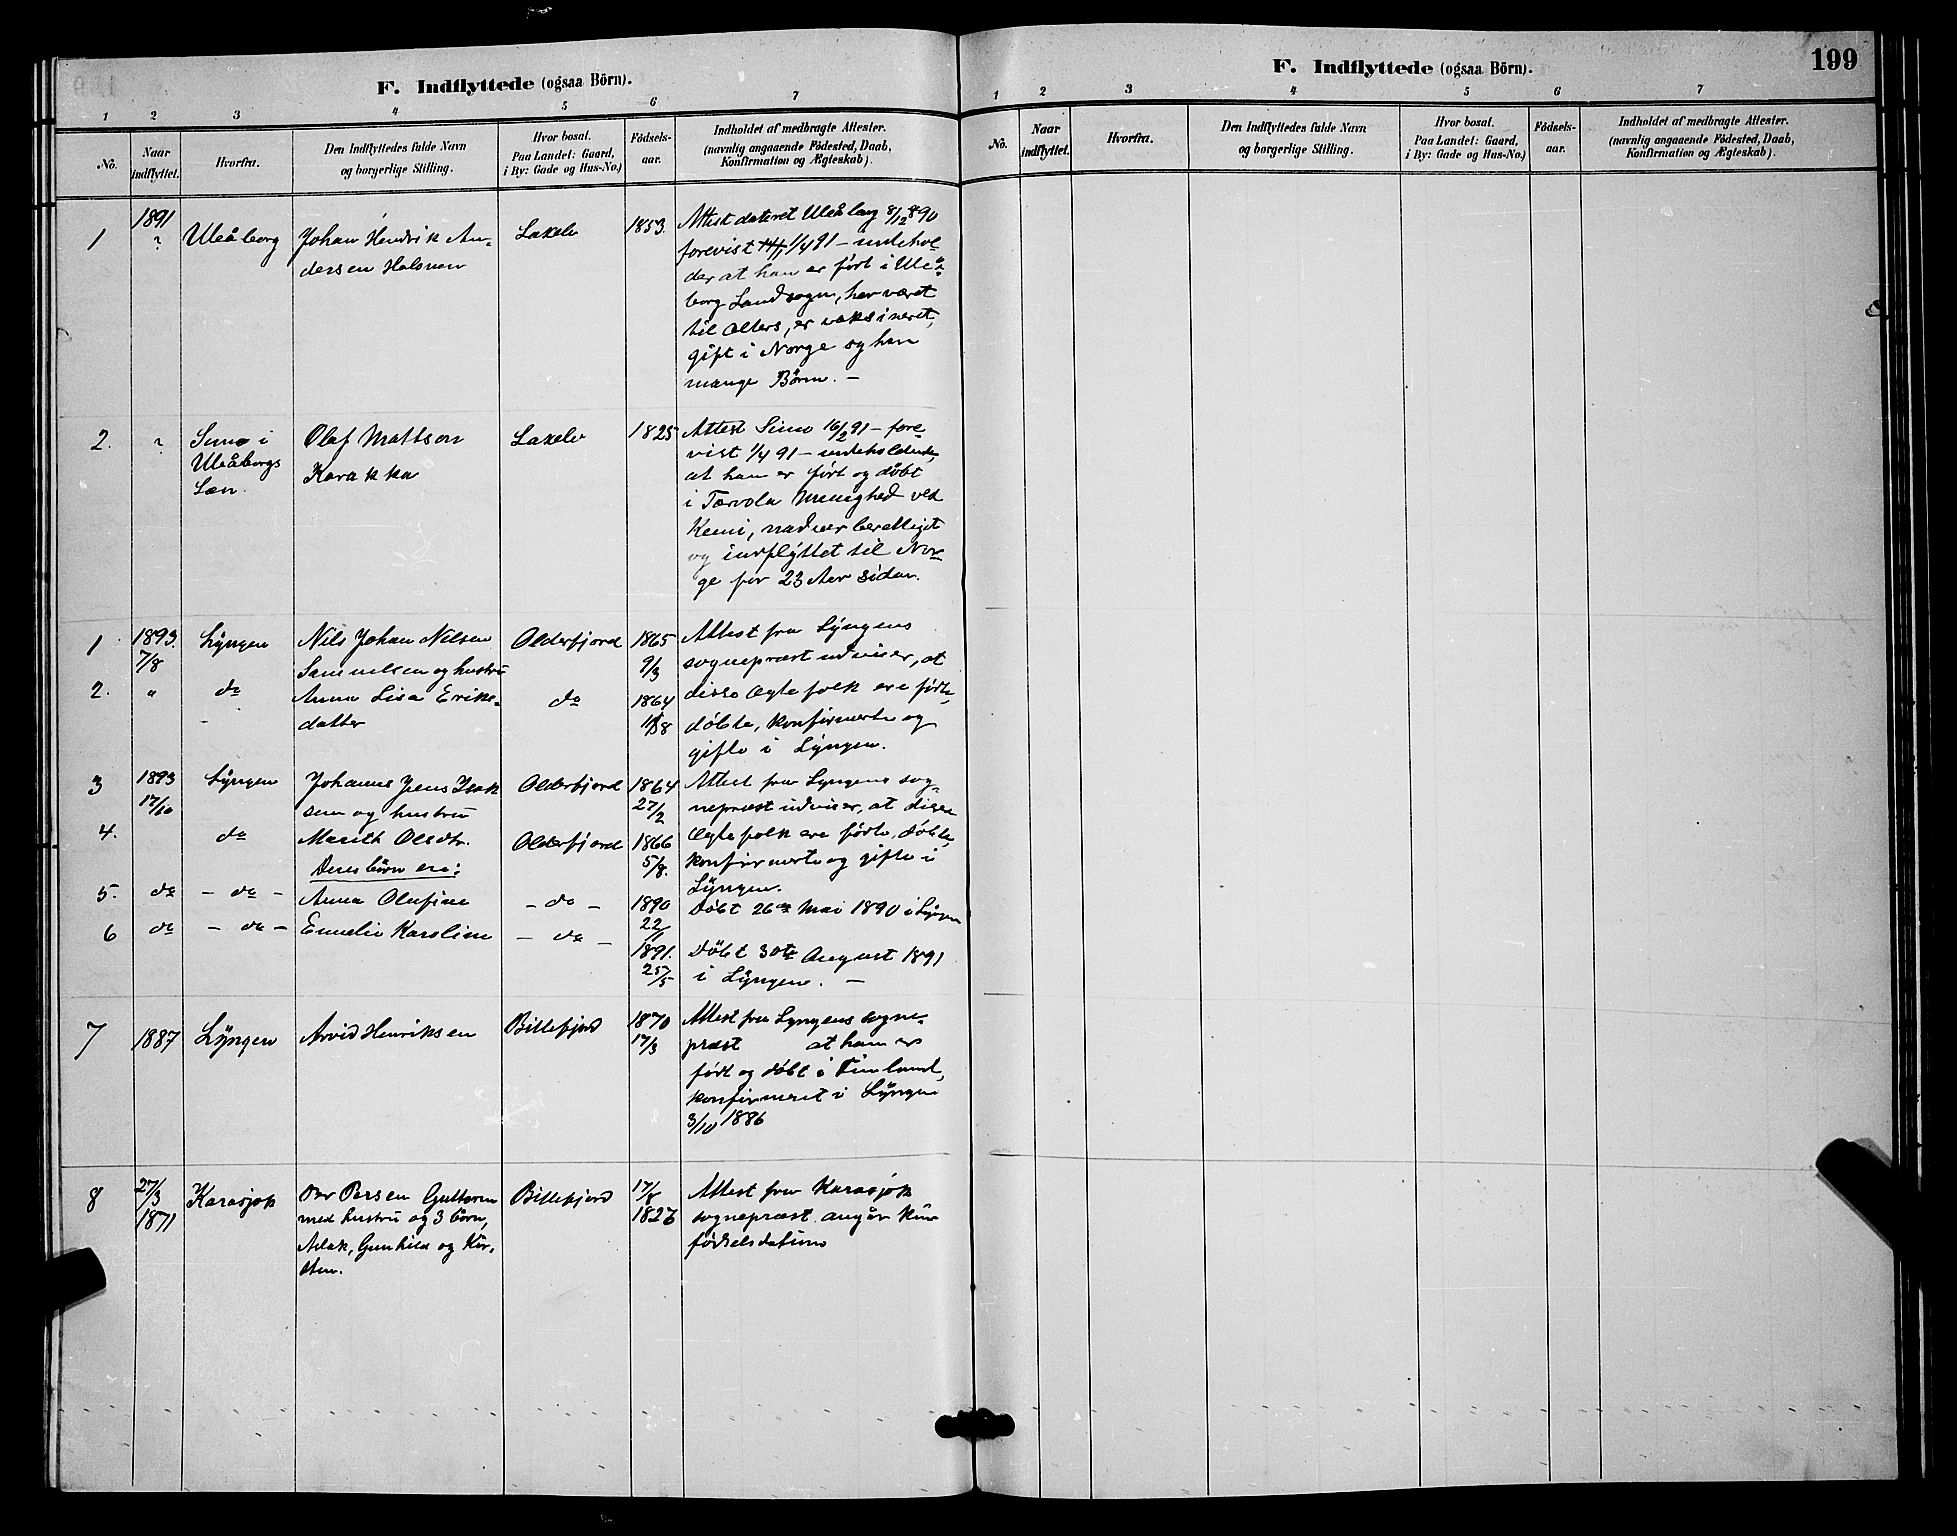 F. Indflyttede (ogsaa Börn).
1 2 3 4 5 6 7
No.
Naar indflyttet.
Hvorfra.
Den Indflyttedes fulde Navn
og borgerlige Stilling.
Hvor bosat.
Paa Landet: Gaard,
i By: Gade og Hus-No.)
Födsels-
aar.
Indholdet af medbragte Attester.
(navnlig angaaende Födested, Daab,
Konfirmation og Ægteskab).
1 1891 ? Uleåborg Johan Hendrik An-
dersen Halonen
Laxelv 1853.
Attest dateret Uleåborg 8/12 890
forevist 1/4 91 - indehol-
der at han er født i Uleå-
borg Landsogn, har været
til Alters, er vaksineret,
gift i Norge og har
mange Börn. -
2. ? Simo i
Uleåborgs
Læn.
Olaf Mattson
Karakka
Laxelv 1825
Attest Simo 16/2 91 - fore-
vist 1/4 91 - indeholdende,
at han er født og døbt
i Tervola Menighed ved
Kemi, nadverberettiget
og indflyttet til Nor-
ge for 23 Aar siden.
1 1893. 7/8 Lyngen Nils Johan Nilsen
Samuelsen og hustru
Olderfjord 1865 9/3
2. " do Anna Lisa Eriks-
datter
do 1864
Attest fra Lyngens
sognepræst udviser, at
disse Ægtefolk ere fødte,
døbte, konfirmerte og
gifte i Lyngen.
3 1893 17/10 Lyngen Johannes Jens Isak
sen og hustru
Olderfjord 1864 27/2
4. do Marith Olsdtr.
Olderfjord 1866 5/8.
Attest fra Lyngens sog-
nepræst udviser, at disse
Ægtefolk ere fødte, døbte,
konfirmerte og gifte i
Lyngen.
Deres børn ere:
5. do - do - Anna Olufine - do - 1890 22/1
Døbt 26de Mai 1890 i Lyngen
6 do - do - Emelie Karoline - do - 1891. 25/5
Døbt 30te August 1891
i Lyngen. -
7 1887 Lyngen Arvid Henriksen Billefjord 1870 17/3
Attest fra Lyngens sogne-
præst at han er
født og døbt i Finland,
konfirmeret i Lyngen
3/10 1886
8 27/3 1871 Karasjok Per Persen Guttorm
med hustru og 3 børn,
Aslak, Gunhild og Kir-
sten.
Billefjord 17/8 1827
Attest fra Karasjok
sognepræst angår kun
fødselsdatum
F. Indflyttede (ogsaa Börn).
199
1 2 3 4 5 6 7
No.
Naar
indflyttet.
Hvorfra.
Den Indflyttedes fulde Navn
og borgerlige Stilling.
Hvor bosat.
Paa Landet: Gaard,
i By: Gade og Hus-No.)
Födsels-
aar.
Indholdet af medbragte Attester.
(navnlig angaaende Födested, Daab,
Konfirmation og Ægteskab).